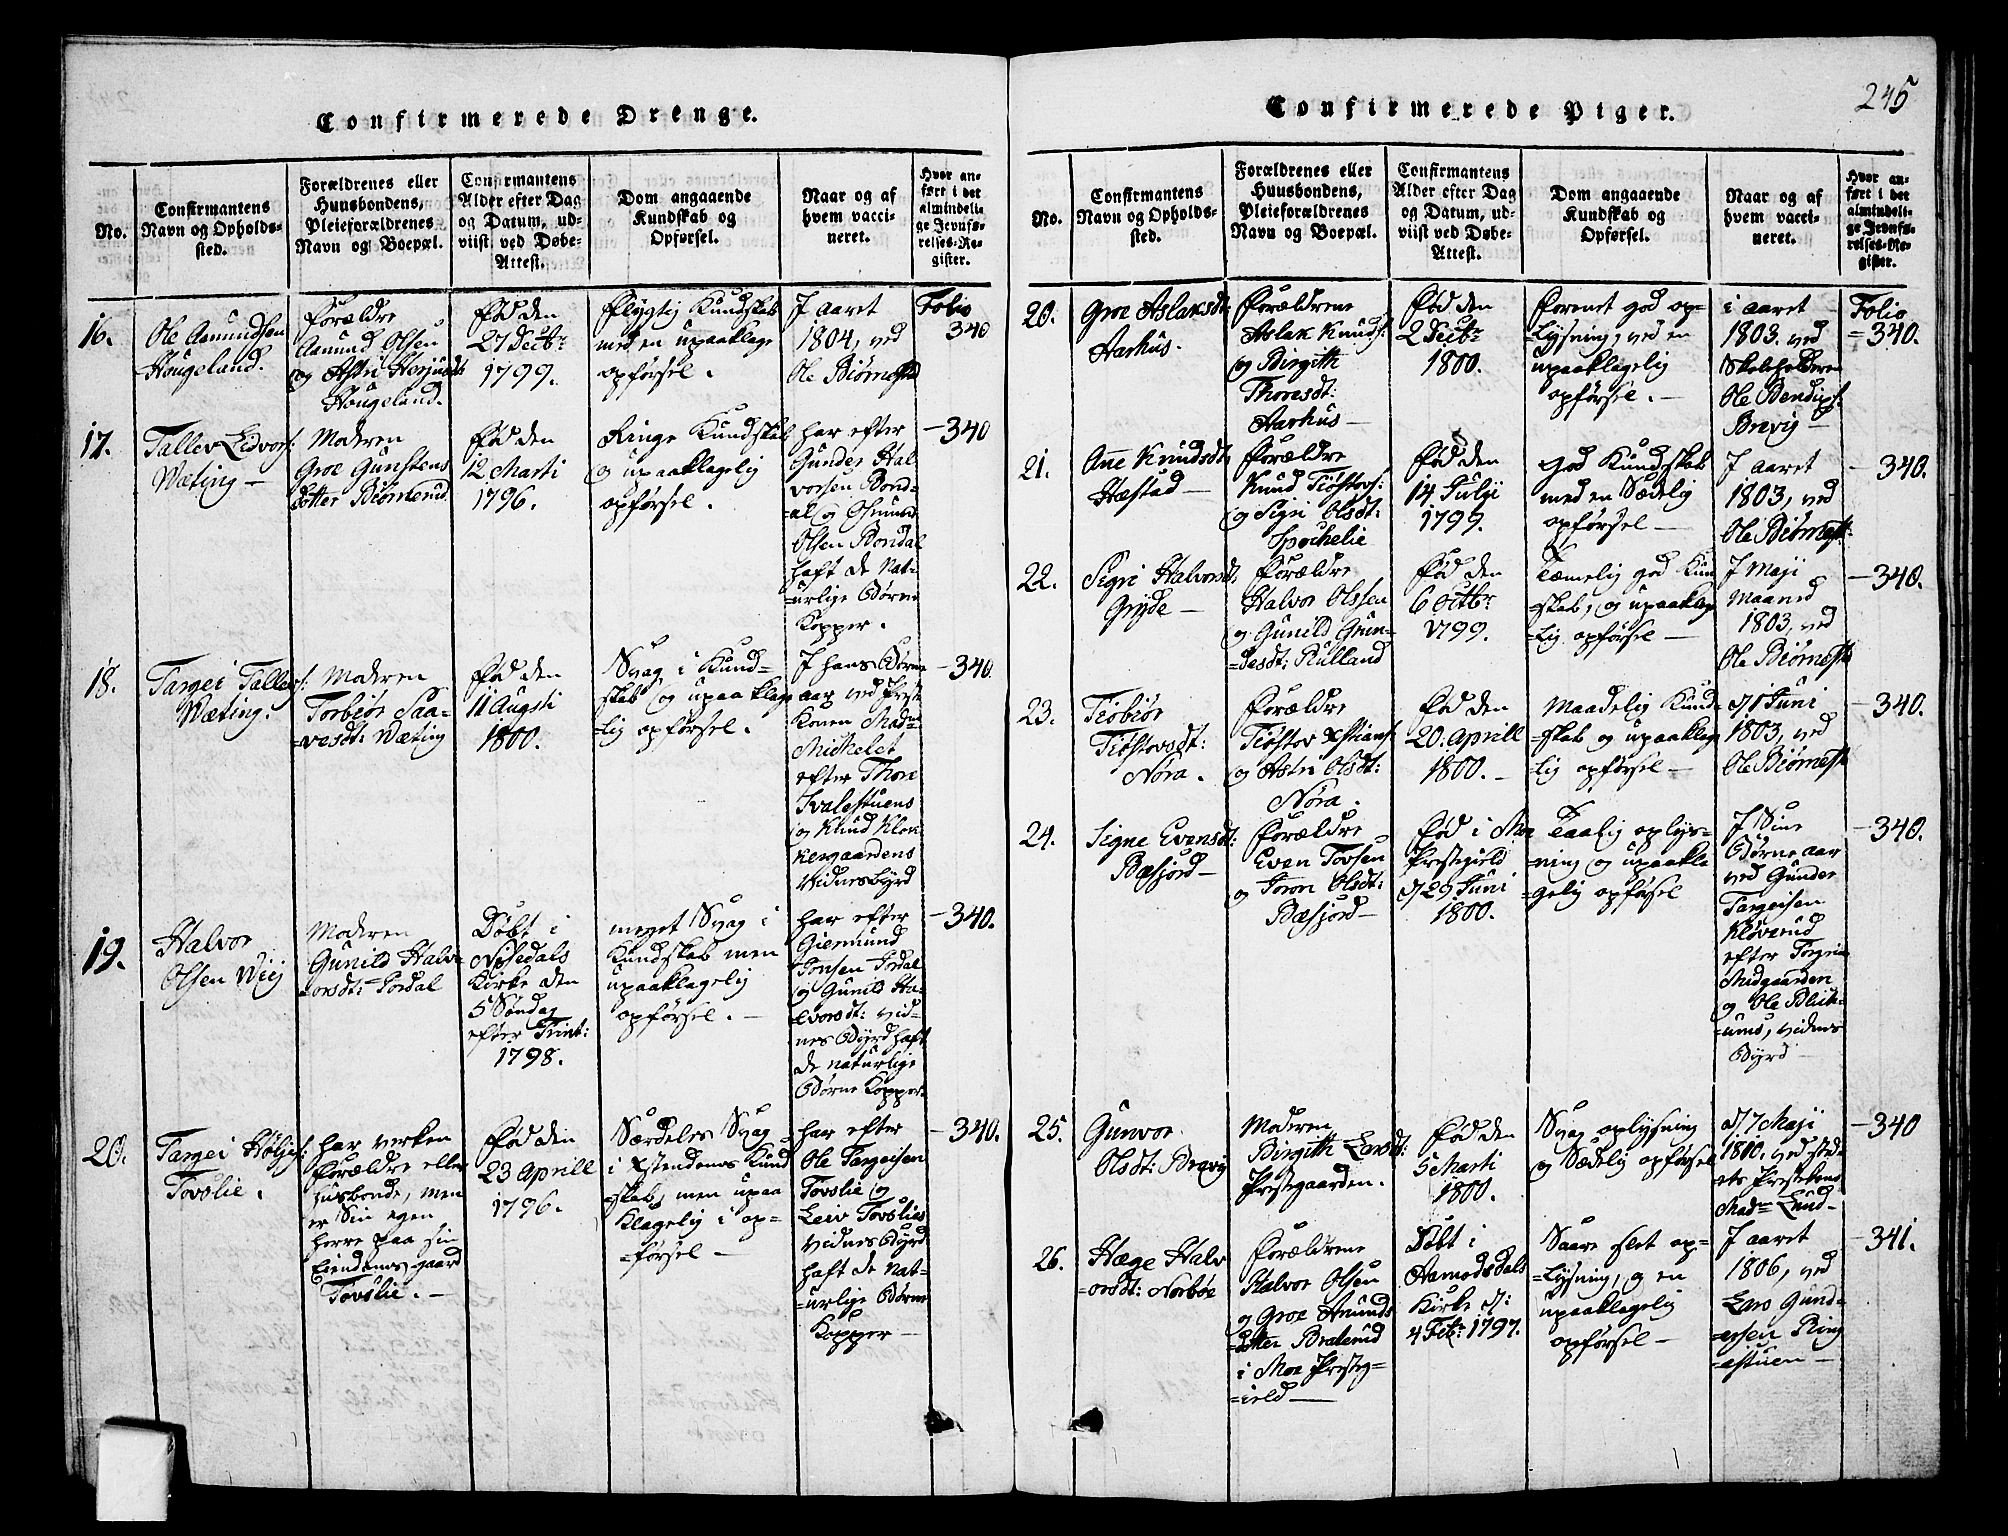 245
Confirmerede Drenge.
No.
Confirmantens
Navn og Opholds-
sted.
Forældrenes eller
Huusbondens,
Pleieforældrenes
Navn og Boepæl.
Confirmantens
Alder efter Dag
og Datum, ud-
viist ved Døbe-
Attest.
Dom angaaende
Kundskab og
Opførsel.
Naar og af
hvem vacci-
neret.
Hvor an-
ført i det
almindeli-
ge Jevnfø-
relses-Re-
gister.
16.
Ole Aamundsen
Hougeland.
Forældre
Aamund Olsen
og Astri Herjusdt
Hougeland.
Fød den
27 Decbr
1799.
Flygtig Kundskab
med en upaaklage
opførsel.
J aaret
1804, ved
Ole Biørnestd
Folio
340
17.
Tallev Eidvors:
Wæting —
Moderen
Groe Gunstens
dotter Biørnerud
Fød den
12 Marti
1796.
Ringe Kundskab
og upaaklagelig
opførsel.
har efter
Gunder Hal
vorsen Bond-
al og Osmund
Olsen Bondal
haft de Nat-
urlige Børne
Kopper.
— 340
18.
Targei Tallevs:
Wæting.
Moderen
Torbiør Saa-
=vesdt: Wæting
Fød den
11 Augsti
1800.
Svag i Kund=
skab og upaaklage
=lig opførsel.
J hans Børne
aar ved Præste
Konen Madm
Michelet
efter Thore
Kvalestuens
og Knud Klok
kergaardens
Vidnesbyrd
— 340
19.
Halvor
Olsen Wiig
Moderen
Gunild Halv-
orsdt: Jordal
Døbt i
Nissedals
Kirke den
5 Søndag
efter Trint:
1798.
meget Svag i
Kundskab men
upaaklagelig
opførsel. —
har efter
Giermund
Jonsen Jordal
og Gunild Ha-
lvorsdt: vid-
nes Byrd haft
de naturlige
Børne Kopper.
— 340.
20.
Targei Høljes:
Tovslie.
har verken
Forældre eller
husbonde, men
er Sin egen
herre paa sin
Eiendoms gaard
Tovslie. —
Fød den
23 Aprill
1796.
Særdeles Svag
i Xstendoms Kund
skab, men upaa
klagelig i op-
=førsel —
har efter
Ole Targeisen
Tovslie og
Leiv Tovslies
Vidnes Byrd
haft de Nat-
=urlige Børne
Kopper —
— 340.
Confirmerede Piger.
No.
Confirmantens
Navn og Opholds-
sted.
Forældrenes eller
Huusbondens,
Pleieforældrenes
Navn og Boepæl.
Confirmantens
Alder efter Dag
og Datum, ud-
viist ved Døbe-
Attest.
Dom angaaende
Kundskab og
Opførsel.
Naar og af
hvem vacci-
neret.
Hvor an-
ført i det
almindeli-
ge Jevnfø-
relses-Re-
gister.
20.
Groe Aslaksdt:
Aarhus.
Forældrene
Aslak Knuds:
og Birgith
Thoresdt:
Aarhus —
Fød den
2 Decbr
1800.
Forenet god op-
lysning, ved en
upaaklagelig
opførsel. —
i aaret
1803. ved
Skoleholderen
Ole Bendixs:
Brevig —
Folio
=340.
21.
Ane Knudsdt:
Hæstad —
Forældre
Knud Tiøstovs:
og Sigri Olsdt:
Fød den
14 Julii
1799.
God Kundskab
med en Sædelig
opførsel —
J aaret
1803, ved
Ole Biørnest:
— 340.
22.
Sigri Halvorsdt
Gryde —
Forældre
Halvor Olssen
og Gunild Gun-
=desdt: Rulland
Fød den
6 Octbr
1799.
Temelig god Kun
skab, og upaaklage
=lig opførsel —
J Maji
Maaned
1803, ved
Ole Biørnest
— 340.
23.
Tiøbiør
Tiøstovsdt:
Nøra.
Forældre
Tiøstov Xstians:
og Astri Olsdt:
Nøra.
Fød den
20: Aprill
1800. —
Maadelig Kund-
=skab og upaaklage
=lig opførsel —
d/1 Juni
1803, ved
Ole Biørnest
— 340.
24.
Signe Evensdt:
Bæsjord —
Forældre
Even Tovsen
og Joron Olsdt:
Bæsjord —
Fød i Moe
Præstegield
d/29 Juni
1800.
Taalig oplys-
=ning og upaakla
=gelig opførsel
J Sine
Børne aar
ved Gunder
Targeisen
Kløverud
efter Torgrim
Midgaarden
og Ole Blik-
=ums, vidnes
Byrd
— 340.
25.
Gunvor
Olsdt: Brevig
Moderen
Birgith Larsdt:
Præstegaarden.
Fød den
5 Marti
1800.
Svag oplysning
og Sædelig opførsel
d/7 Maji
1800. ved sted-
ets Præstekone
Madm Lund —
— 340
26.
Hæge Halv
=orsdt: Norbøe
Forældrene
Halvor Olsen
og Groe Amunds
dotter Bralerud
i Moe Præsteg-
=ield —
Døbt i
Aamodsdals
Kirke d:
4 Febr: 1797.
Saare slet op-
=lysning, og en
upaaklagelig
opførsel —
J aaret
1806, ved
Lars Gund-
=ersen Ring
=estuen —
— 341.